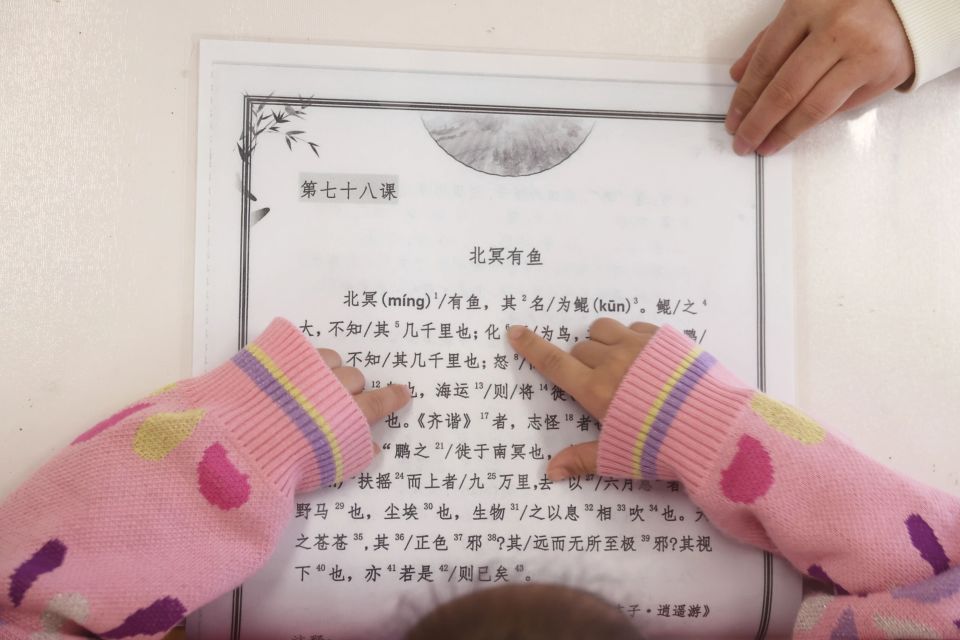 第七十八课
北冥有鱼
北冥(míng)¹/有鱼，其²名/为鲲(kūn)³。鲲/之⁴
大，不知/其⁵几千里也；化⁶ /为鸟， 鹏/
不知/其几千里也；怒⁸/
¹² 也，海运¹³/则/将¹⁴徙
也。《齐谐》¹⁷者，志怪¹⁸者
“鹏之²¹/徙于南冥也，
扶摇²⁴而上者/九²⁵万里，去 以²⁷/六月息 者
野马²⁹也，尘埃³⁰也，生物³¹/之以息³²相³³吹³⁴也。天
之苍苍³⁵，其³⁶/正色³⁷邪³⁸?其/远而无所至极³⁹邪?其视
下⁴⁰也，亦⁴¹若是⁴²/则已矣⁴³。
子·逍遥游》